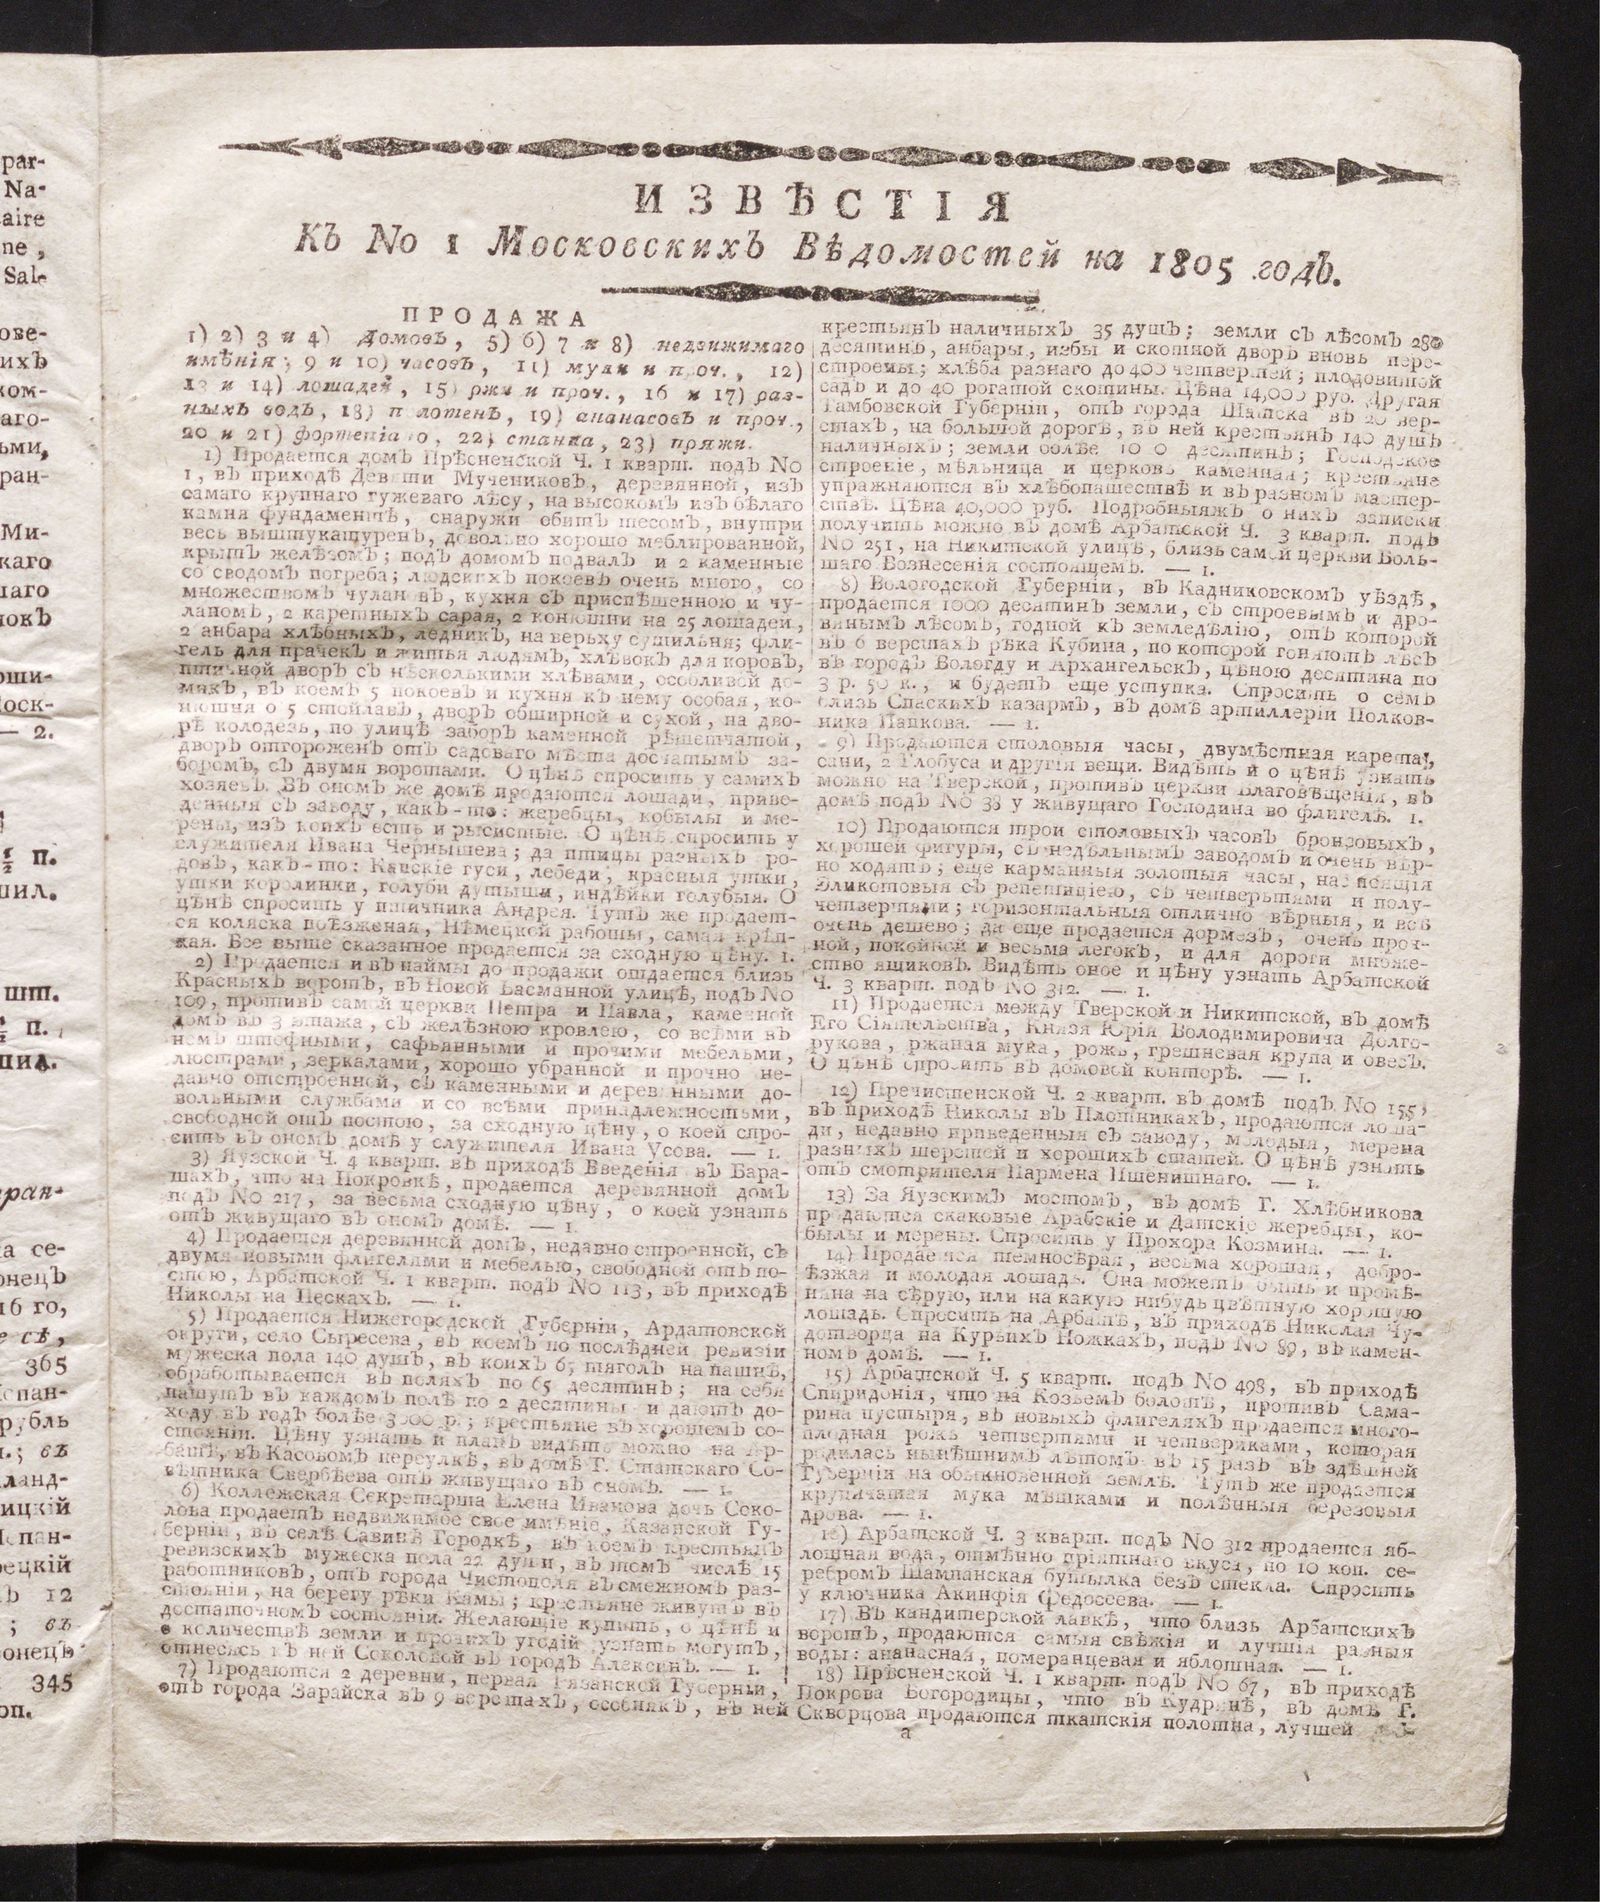 par-
Na-
aire
ne ,
Sal-
ове-
ихЪ
ком-
аго-
ьми,
ран-
Ми-
каго
шаго
локЪ
Моск-
— 2.
½ п.
шил.
шт.
½ п.
шил.
ран-
ка се-
онецЪ
16 го,
е сЪ,
365
спан-
рубль
.; вЪ
ланд-
ицкій
спан-
рецкій
Ъ 12
; вЪ
онецЪ
345
оп.
ИЗВѢСТІЯ
КЪ No 1 МосковскихЪ Вѣдомостей на 1805 годЪ.
ПРОДАЖА
1) 2) 3 и 4) домовЪ, 5) 6) 7 и 8) недвижимаго
имѣнія; 9 и 10) часовЪ, 11) муки и проч., 12)
13 и 14) лошадей, 15) ржи и проч., 16 и 17) раз-
ныхЪ водЪ, 18) полотенЪ, 19) ананасовЪ и проч.,
20 и 21) фортепіано, 22) станка, 23) пряжи.
1) Продается домЪ Прѣсненской Ч. 1 кварт. подЪ No
1, вЪ приходѣ Девяти Мучениковъ, деревянной, изЪ
самаго крупнаго гужеваго лѣсу, на высокомЪ изЪ бѣлаго
камня фундаментѣ, снаружи обитЪ тесомЪ, внутри
весь выштукатуренЪ, довольно хорошо меблированной,
крытЪ желѣзомЪ; подЪ домомЪ подвалЪ и 2 каменные
со сводомЪ погреба; людскихЪ покоевЪ очень много, со
множествомЪ чулановЪ, кухня сЪ приспѣшенною и чу-
ланомЪ, 2 каретныхЪ сарая, 2 конюшни на 25 лошадей,
2 анбара хлѣбныхЪ, ледникЪ, на верьху сушильня; фли-
гель для прачекЪ и житья людямЪ, хлѣвокЪ для коровЪ,
птичной дворЪ сЪ нѣсколькими хлѣвами, особливой до-
микЪ, вЪ коемЪ 5 покоевЪ и кухня кЪ нему особая, ко-
нюшня о 5 стойлахЪ, дворЪ обширной и сухой, на дво-
рѣ колодезь, по улицѣ заборЪ каменной рѣшетчатой,
дворЪ отгороженЪ отЪ садоваго мѣста досчатымЪ за-
боромЪ, сЪ двумя воротами. О цѣнѣ спросить у самихЪ
хозяевЪ. ВЪ ономЪ же домѣ продаются лошади, приве-
денныя сЪ заводу, какЪ-то: жеребцы, кобылы и ме-
рены, изЪ коихЪ есть и рысистые. О цѣнѣ спросить у
служителя Ивана Чернышева; да птицы разныхЪ ро-
довЪ, какЪ-то: Капскіе гуси, лебеди, красныя утки,
утки королинки, голуби дутыши, индѣйки голубыя. О
цѣнѣ спросить у птичника Андрея. ТутЪ же продает-
ся коляска поѣзженая, Нѣмецкой работы, самая крѣп-
кая. Все выше сказанное продается за сходную цѣну. 1.
2) Продается и вЪ наймы до продажи отдается близь
КрасныхЪ воротЪ, вЪ Новой Басманной улицѣ, подЪ No
109, противЪ самой церкви Петра и Павла, каменной
домЪ вЪ 3 этажа, сЪ желѣзною кровлею, со всѣми вЪ
немЪ штофными, сафьянными и прочими мебельми,
люстрами, зеркалами, хорошо убранной и прочно не-
давно отстроенной, сЪ каменными и деревянными до-
вольными службами и со всѣми принадлежностьми,
свободной отЪ постою, за сходную цѣну, о коей спро-
сить вЪ ономЪ домѣ у служителя Ивана Усова. — 1.
3) Яузской Ч. 4 кварт. вЪ приходѣ Введенія вЪ Бара-
шахЪ, что на Покровкѣ, продается деревянной домЪ
подЪ No 217, за весьма сходную цѣну, о коей узнать
отЪ живущаго вЪ ономЪ домѣ. — 1.
4) Продается деревянной домЪ, недавно строенной, сЪ
двумя новыми флигелями и мебелью, свободной отЪ по-
стою, Арбатской Ч. 1 кварт. подЪ No 113, вЪ приходѣ
Николы на ПескахЪ. — 1.
5) Продается Нижегородской Губерніи, Ардатовской
округи, село Сыресева, вЪ коемЪ по послѣдней ревизіи
мужеска пола 140 душЪ, вЪ коихЪ 65 тяголЪ на пашнѣ,
обработывается вЪ поляхЪ по 65 десятинЪ; на себя
пашутЪ вЪ каждомЪ полѣ по 2 десятины и даютЪ до-
ходу вЪ годЪ болѣе 3000 р.; крестьяне вЪ хорошемЪ со-
стояніи. Цѣну узнать и планЪ видѣть можно на Ар-
батѣ, вЪ Касовомъ переулкѣ, вЪ домѣ Г. Статскаго Со-
вѣтника Свербѣева отЪ живущаго вЪ ономЪ. — 1.
6) Коллежская Секретарша Елена Иванова дочь Соко-
лова продаетЪ недвижимое свое имѣніе, Казанской Гу-
берніи, вЪ селѣ Савинѣ Городкѣ, вЪ коемЪ крестьянЪ
ревизскихЪ мужеска пола 22 души, вЪ томЪ числѣ 15
работниковЪ, отЪ города Чистополя вЪ смежномЪ раз-
стояніи, на берегу рѣки Камы; крестьяне живутЪ вЪ
достаточномЪ состояніи. Желающіе купить, о цѣнѣ и
о количествѣ земли и прочихЪ угодій узнать могутЪ,
отнесясь кЪ ней Соколовой вЪ городЪ АлексинЪ. — 1.
7) Продаются 2 деревни, первая Рязанской Губерніи,
отЪ города Зарайска вЪ 9 верстахЪ, особнякЪ, вЪ ней
крестьянЪ наличныхЪ 35 душЪ; земли сЪ лѣсомЪ 280
десятинЪ, анбары, избы и скотной дворЪ вновь пере-
строены; хлѣба разнаго до 400 четвертей; плодовитой
садЪ и до 40 рогатой скотины. Цѣна 14,000 руб. Другая
Тамбовской Губерніи, отЪ города Шатска вЪ 20 вер-
стахЪ, на большой дорогѣ, вЪ ней крестьянЪ 140 душЪ
наличныхЪ; земли болѣе 1000 десятинЪ; Господское
строеніе, мѣльница и церковь каменная; крестьяне
упражняются вЪ хлѣбопашествѣ и вЪ разномЪ мастер-
ствѣ. Цѣна 40,000 руб. ПодробныяжЪ о нихЪ записки
получить можно вЪ домѣ Арбатской Ч. 3 кварт. подЪ
No 251, на Никитской улицѣ, близь самой церкви Боль-
шаго Вознесенія состоящемЪ. — 1.
8) Вологодской Губерніи, вЪ КадниковскомЪ уѣздѣ,
продается 1000 десятинЪ земли, сЪ строевымЪ и дро-
вянымЪ лѣсомЪ, годной кЪ земледѣлію, отЪ которой
вЪ 6 верстахЪ рѣка Кубина, по которой гоняютЪ лѣсЪ
вЪ городЪ Вологду и АрхангельскЪ, цѣною десятина по
3 р. 50 к., и будетЪ еще уступка. Спросить о семЪ
близь СпаскихЪ казармЪ, вЪ домѣ артиллеріи Полков-
ника Папкова. — 1.
9) Продаются столовыя часы, двумѣстная карета,
сани, 2 Глобуса и другія вещи. Видѣть и о цѣнѣ узнать
можно на Тверской, противЪ церкви Благовѣщенія, вЪ
домѣ подЪ No 38 у живущаго Господина во флигелѣ. 1.
10) Продаются трои столовыхЪ часовЪ бронзовыхЪ,
хорошей фигуры, сЪ недѣльнымЪ заводомЪ и очень вѣр-
но ходятЪ; еще карманныя золотыя часы, настоящія
Эликотовыя сЪ репетиціею, сЪ четвертьми и полу-
четвертями; горизонтальныя отлично вѣрныя, и всѣ
очень дешево; да еще продается дормезЪ, очень проч-
ной, покойной и весьма легокЪ, и для дороги множе-
ство ящиковЪ. Видѣть оное и цѣну узнать Арбатской
Ч. 3 кварт. подЪ No 312. — 1.
11) Продается между Тверской и Никитской, вЪ домѣ
Его Сіятельства, Князя Юрія Володимировича Долго-
рукова, ржаная мука, рожь, грешневая крупа и овесЪ.
О цѣнѣ спросить вЪ домовой конторѣ. — 1.
12) Пречистенской Ч. 2 кварт. вЪ домѣ подЪ No 155,
вЪ приходѣ Николы вЪ ПлотникахЪ, продаются лоша-
ди, недавно приведенныя сЪ заводу, молодыя, мерена
разныхЪ шерстей и хорошихЪ статей. О цѣнѣ узнать
отЪ смотрителя Пармена Пшенишнаго. — 1.
13) За ЯузскимЪ мостомЪ, вЪ домѣ Г. Хлѣбникова
продаются скаковые Арабскіе и Датскіе жеребцы, ко-
былы и мерены. Спросить у Прохора Козмина. — 1.
14) Продается темносѣрая, весьма хорошая, добро-
ѣзжая и молодая лошадь. Она можетЪ быть и промѣ-
няна на сѣрую, или на какую нибудь цвѣтную хорошую
лошадь. Спросить на Арбатѣ, вЪ приходѣ Николая Чу-
дотворца на КурьихЪ НожкахЪ, подЪ No 89, вЪ камен-
номЪ домѣ. — 1.
15) Арбатской Ч. 5 кварт. подЪ No 498, вЪ приходѣ
Спиридонія, что на КозьемЪ болотѣ, противЪ Сама-
рина пустыря, вЪ новыхЪ флигеляхЪ продается много-
плодная рожь четвертями и четвериками, которая
родилась нынѣшнимЪ лѣтомЪ вЪ 15 разЪ вЪ здѣшней
Губерніи на обыкновенной землѣ. ТутЪ же продается
крупичатая мука мѣшками и полѣнныя березовыя
дрова. — 1.
16) Арбатской Ч. 3 кварт. подЪ No 312 продается яб-
лошная вода, отмѣнно пріятнаго вкуса, по 10 коп. се-
ребромЪ Шампанская бутылка безЪ стекла. Спросить
у ключника Акинфія Ѳедосеева. — 1.
17) ВЪ кандитерской лавкѣ, что близь АрбатскихЪ
воротЪ, продаются самыя свѣжія и лучшія разныя
воды: ананасная, померанцевая и яблошная. — 1.
18) Прѣсненской Ч. 1 кварт. подЪ No 67, вЪ приходѣ
Покрова Богородицы, что вЪ Кудринѣ, вЪ домѣ Г.
Скворцова продаются ткатскія полотна, лучшей
а